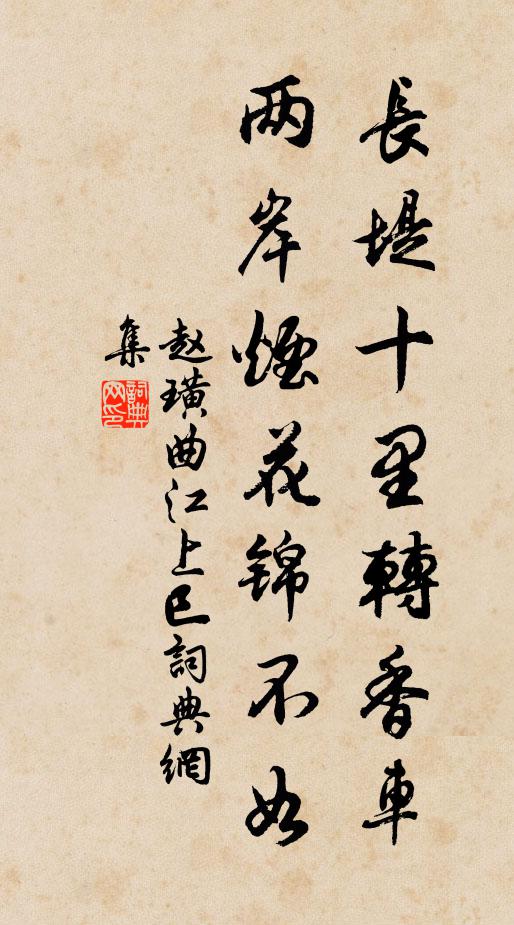 長堤十里轉香車
两岸煙花锦不如
赵璜曲江上巳詞典網
集
詞典
网印